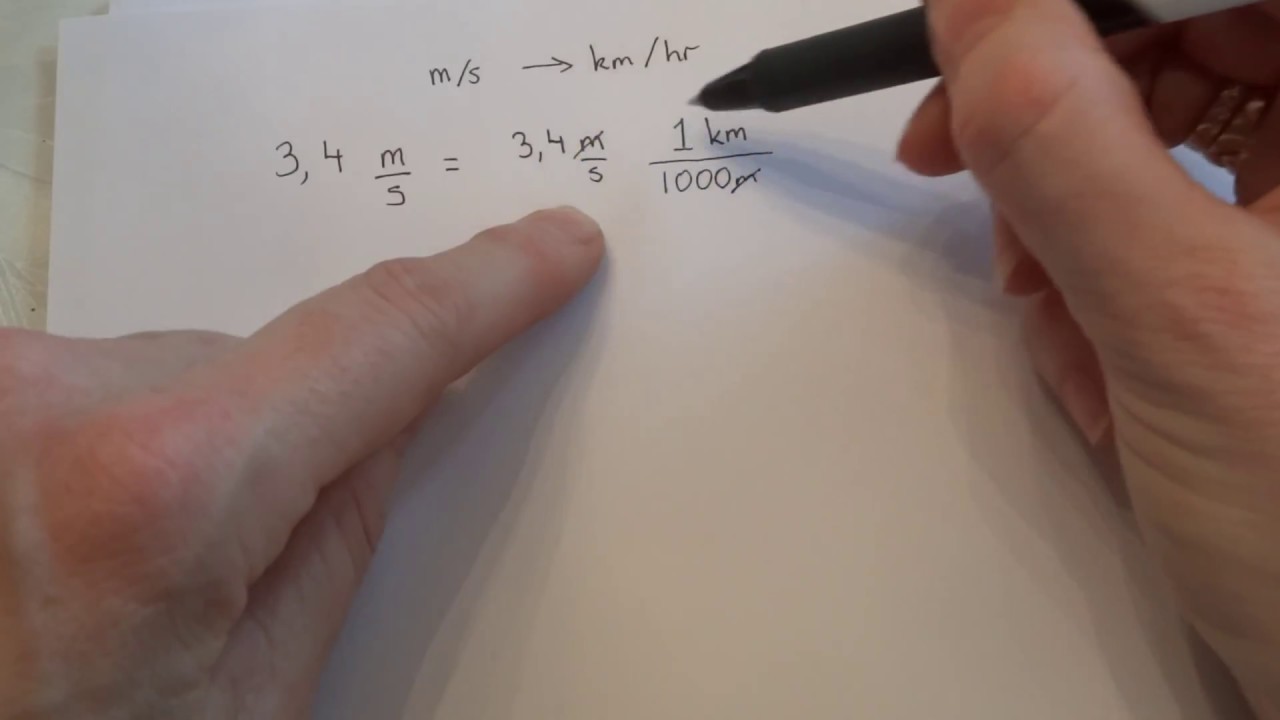 m/s → km/hr
3,4 m/s = 3,4 m/s 1 km/1000m